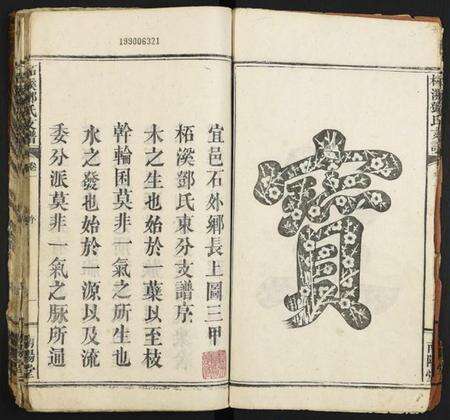 199006321
寶
宜邑石外鄉長上圖三甲
栢溪鄧氏東分支譜序
木之生也始於一蘖以至枝
幹輪囷莫非一氣之所生也
水之發也始於一源以及流
委分派莫非一氣之脈所通
栢溪鄧氏支譜
南陽堂